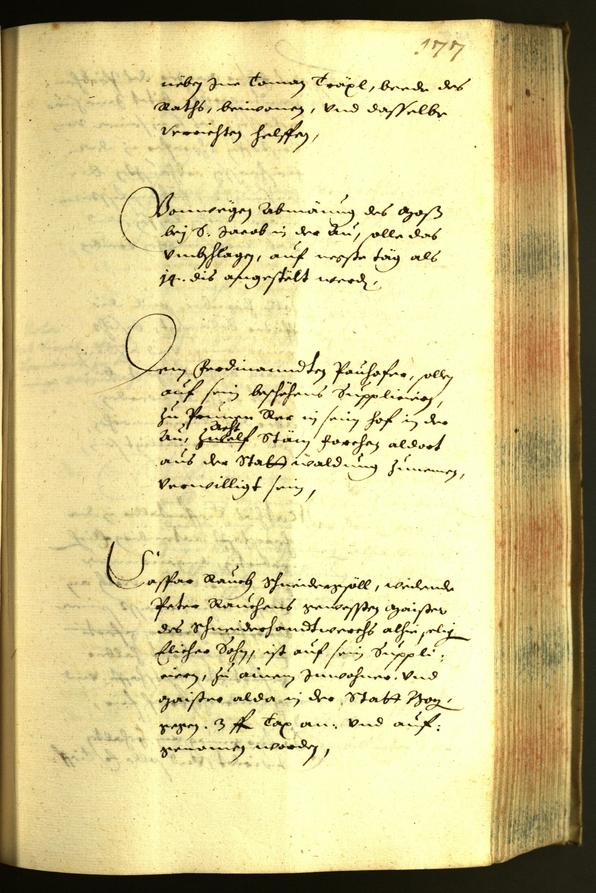 177
neben Ime Taman Träxl, beede des
Raths, beiwonen, vnd dasselbe
verrichten helffen,
Vonwegen Abmänung des Moß
bej S. Jacob in der Au, solle das
vmbschlagen, auf negste täg als
14. dis angestelt werden,
Dem Ferdinanndten Pauhofer, sollen
auf sein beschehens Supplicieren,
zu Prunnen Rer in sein hof in der
Acht
Au, zwelf Stäm forchen aldort
aus der Statt waldung zunemen,
verwilligt sein,
Caspar Rauch Schneidergsöll, weilende
Peter Rauchens gewessten Maister
des Schneiderhandtwerchs alhie, selig
Elicher Sohn, ist auf sein Suppli:
ciern, zu ainem Inwohner: vnd
Maister alda in der Statt Bozen
gegen 3 ff Tax an: vnd auf:
genomen worden,